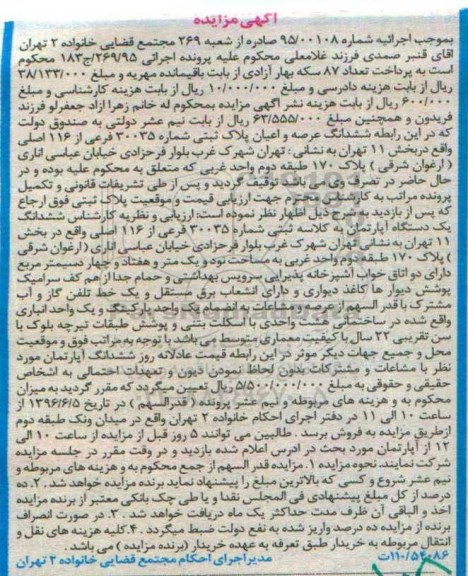 آگهی مزایده
بموجب اجرائیه شماره ۹۵/۰۰۱۰۸ صادره از شعبه ۲۶۹ مجتمع قضایی خانواده ۲ تهران
آقای قنبر صمدی فرزند غلامعلی محکوم علیه پرونده اجرائی ۲۶۹/۹۵/ج۱۸۳ محکوم
است به پرداخت تعداد ۸۷ سکه بهار آزادی از بابت باقیمانده مهریه و مبلغ ۳۸/۱۳۳/۰۰۰
ریال از بابت هزینه دادرسی و مبلغ ۱۰/۰۰۰/۰۰۰ ریال از بابت هزینه کارشناسی و مبلغ
۶۰۰/۰۰۰ ریال از بابت هزینه نشر آگهی مزایده بمحکوم له خانم زهرا آزاد جعفرلو فرزند
فریدون و همچنین مبلغ ۶۳/۵۵۵/۰۰۰ ریال از بابت نیم عشر دولتی به صندوق دولت
که در این رابطه ششدانگ عرصه و اعیان پلاک ثبتی شماره ۳۰۰۳۵ فرعی از ۱۱۶ اصلی
واقع دربخش ۱۱ تهران به نشانی : تهران شهرک غرب بلوار فرحزادی خیابان عباسی اناری
( ارغوان شرقی ) پلاک ۱۷۰ طبقه دوم واحد غربی که متعلق به محکوم علیه بوده و در
حال حاضر در تصرف وی می باشد توقیف گردید و پس از طی تشریفات قانونی و تکمیل
پرونده مراتب به کارشناس محترم جهت ارزیابی قیمت و موقعیت پلاک ثبتی فوق ارجاع
که پس از بازدید به شرح ذیل اظهار نظر نموده است: ارزیابی و نظریه کارشناس ششدانگ
یک دستگاه آپارتمان به کلاسه ثبتی شماره ۳۰۰۳۵ فرعی از ۱۱۶ اصلی واقع در بخش
۱۱ تهران به نشانی تهران شهرک غرب بلوار فرحزادی خیابان عباسی اناری (ارغوان شرقی
) پلاک ۱۷۰ طبقه دوم واحد غربی به مساحت نود و یک متر و هفتاد و چهار دسیمتر مربع
دارای دو اتاق خواب آشپزخانه پذیرایی سرویس بهداشتی و حمام جدا از هم کف سرامیک
پوشش دیوار ها کاغذ دیواری و دارای انشعاب برق مستقل و یک خط تلفن گاز و آب
مشترک با قدر السهم از عرصه و مشاعات به انضمام یک واحد پارکینگ و یک واحد انباری
واقع شده در ساختمانی هشت واحدی با اسکلت بتنی و پوشش طبقات تیرچه بلوک با
سن تقریبی ۲۲ سال با کیفیت معماری متوسط می باشد با توجه به مراتب فوق و موقعیت
محل و جمیع جهات دیگر موثر در این رابطه قیمت عادلانه روز ششدانگ آپارتمان مورد
نظر با مشاعات و مشترکات بدون لحاظ نمودن دیون و تعهدات احتمالی به اشخاص
حقیقی و حقوقی به مبلغ ۵/۵۰۰/۰۰۰/۰۰۰ ریال تعیین میگردد که مقرر گردید به میزان
محکوم به و هزینه های مربوطه و نیم عشر پرونده ( قدرالسهم ) در تاریخ ۱۳۹۶/۶/۵ از
ساعت ۱۰ الی ۱۱ در دفتر اجرای احکام خانواده ۲ تهران واقع در میدان ونک طبقه دوم
ازطریق مزایده به فروش برسد . طالبین می توانند ۵ روز قبل از مزایده از ساعت ۱۰ الی
۱۲ از آپارتمان مورد بحث در آدرس اعلام شده بازدید و در وقت مقرر در جلسه مزایده
شرکت نمایند. نحوه مزایده ۱. مزایده قدر السهم از جمع محکوم به و هزینه های مربوطه و
نیم عشر شروع و کسی که بالاترین مبلغ را پیشنهاد نماید برنده مزایده خواهد شد . ۲. ده
درصد از کل مبلغ پیشنهادی فی المجلس نقدا و یا طی چک بانکی معتبر از برنده مزایده
اخذ و الباقی آن ظرف مدت حداکثر یک ماه دریافت خواهد شد . ۳. در صورت انصراف
برنده از مزایده ده درصد واریز شده به نفع دولت ضبط میگردد . ۴.کلیه هزینه های نقل و
انتقال مربوطه به خریدار طبق تعرفه به عهده خریدار (برنده مزایده ) می باشد .
۱۱۰/۵۴۰۸۶ت
مدیراجرای احکام مجتمع قضایی خانواده ۲ تهران